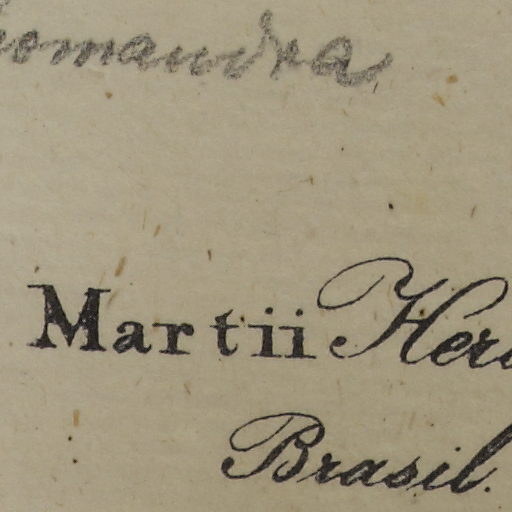 omandra
Martii Her
Brasil.